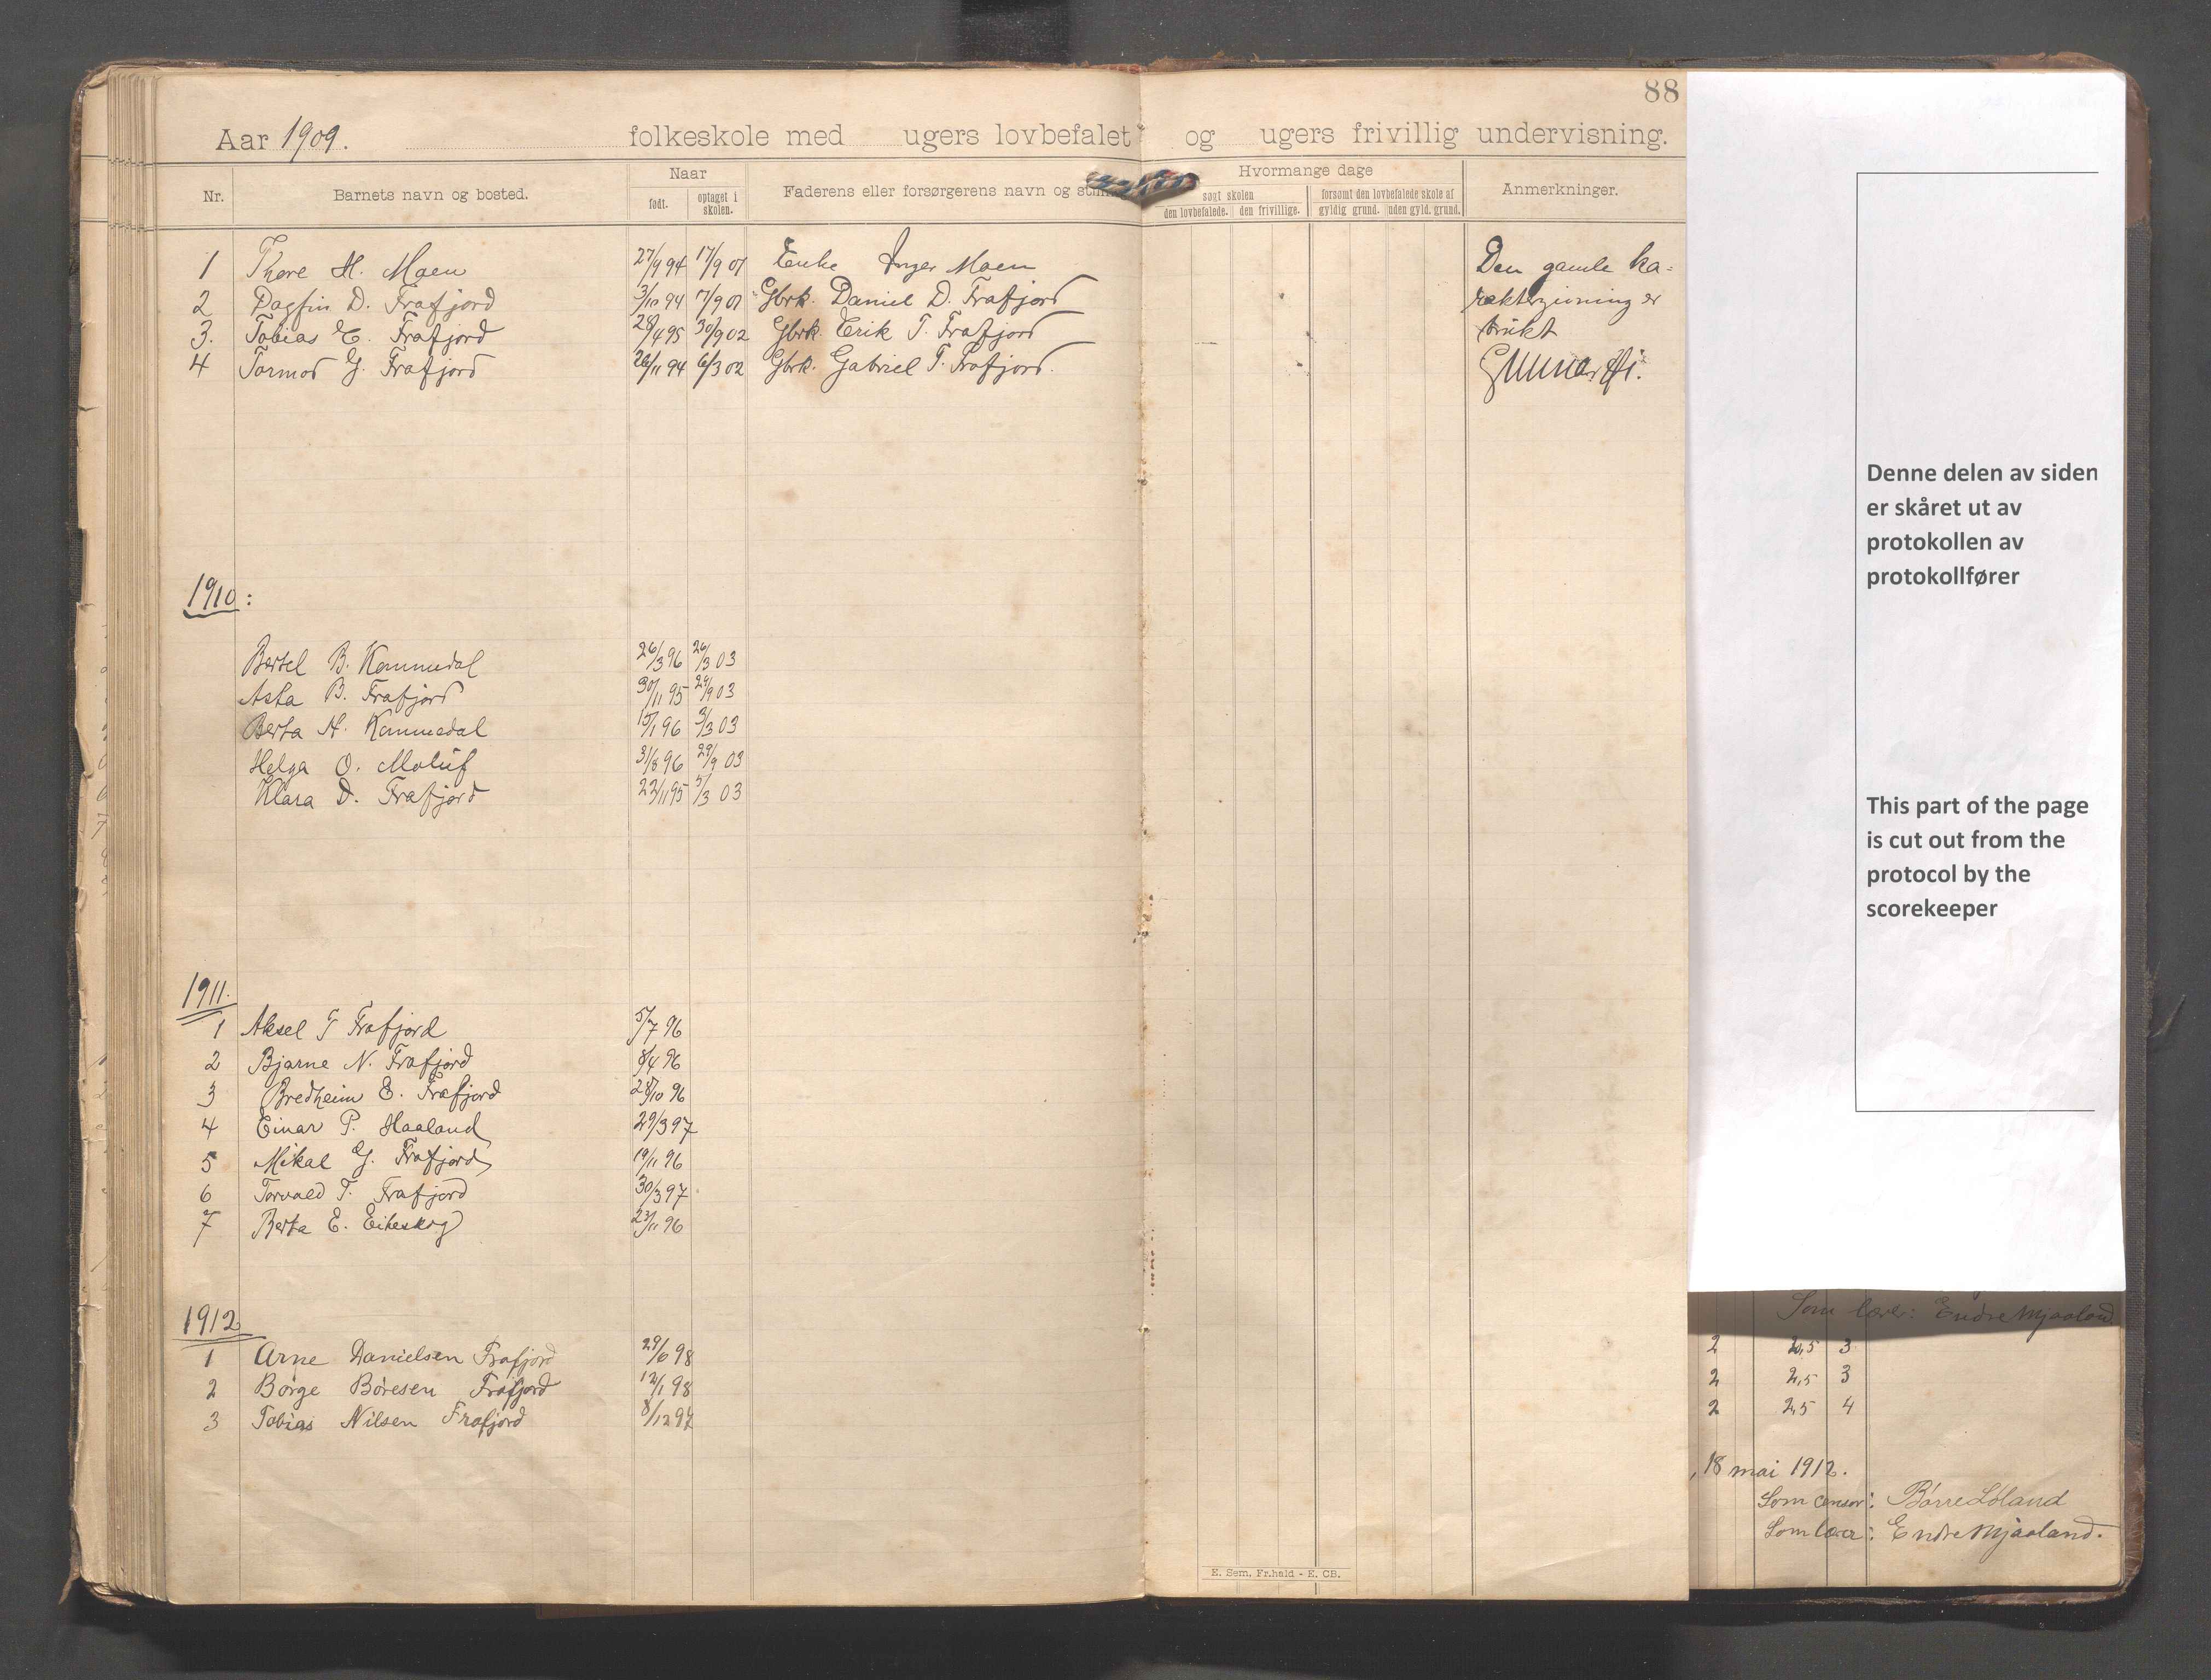 88
Aar 1909. folkeskole med ugers lovbefalet og ugers frivillig undervisning.
Nr. Barnets navn og bosted. Naar Faderens eller forsørgerens navn og Hvormange dage Anmerkninger.
født. optaget i skolen. søgt skolen forsømt den lovbefalede skole af
den lovbefalede. den frivillige. gyldig grund. uden gyld. grund.
1 Thore H. Maen 27/9 94 17/9 01 Enke Inger Maen Den gamle ka-
2 Dagfin D. Frafjord 3/10 94 17/9 01 Gbrk. Daniel D. Frafjord raktergivning er
3. Tobias E. Frafjord 28/4 95 30/9 02 Gbrk. Erik T. Frafjord brukt
4 Tormod G. Frafjord 26/11 94 6/3 02 Gbrk. Gabriel T. Frafjord. Gunnar
1910:
Bertel B. Kommedal 26/3 96 26/3 03
Asta B. Frafjord 30/11 95 29/9 03
Berta H. Kommedal 15/1 96 3/3 03
Helga O. Moluf 31/8 96 29/9 03
Klara D. Frafjord 22/11 95 5/3 03
1911.
1 Aksel T Frafjord 5/7 96
2 Bjarne N. Frafjord 8/4 96
3 Bredheim E. Frafjord 28/10 96
4 Einar P. Haaland 29/3 97
5 Mikal G. Frafjord 19/11 96
6 Torvald T. Frafjord 30/3 97
7 Berta E. Eikeskog 23/11 96
1912
1 Arne Danielsen Frafjord 29/6 98
2 Børge Børesen Frafjord 12/1 98
3 Tobias Nilsen Frafjord 8/12 97
E. Sem, Fr.hald - E. CB.
Denne delen av siden
er skåret ut av
protokollen av
protokollfører
This part of the page
is cut out from the
protocol by the
scorekeeper
Som lærer: Endre Mjaaland
2 2,5 3
2 2,5 3
2 2,5 4
, 18 mai 1912.
Som censor: Børre Løland
Som lærer: Endre Mjaaland.